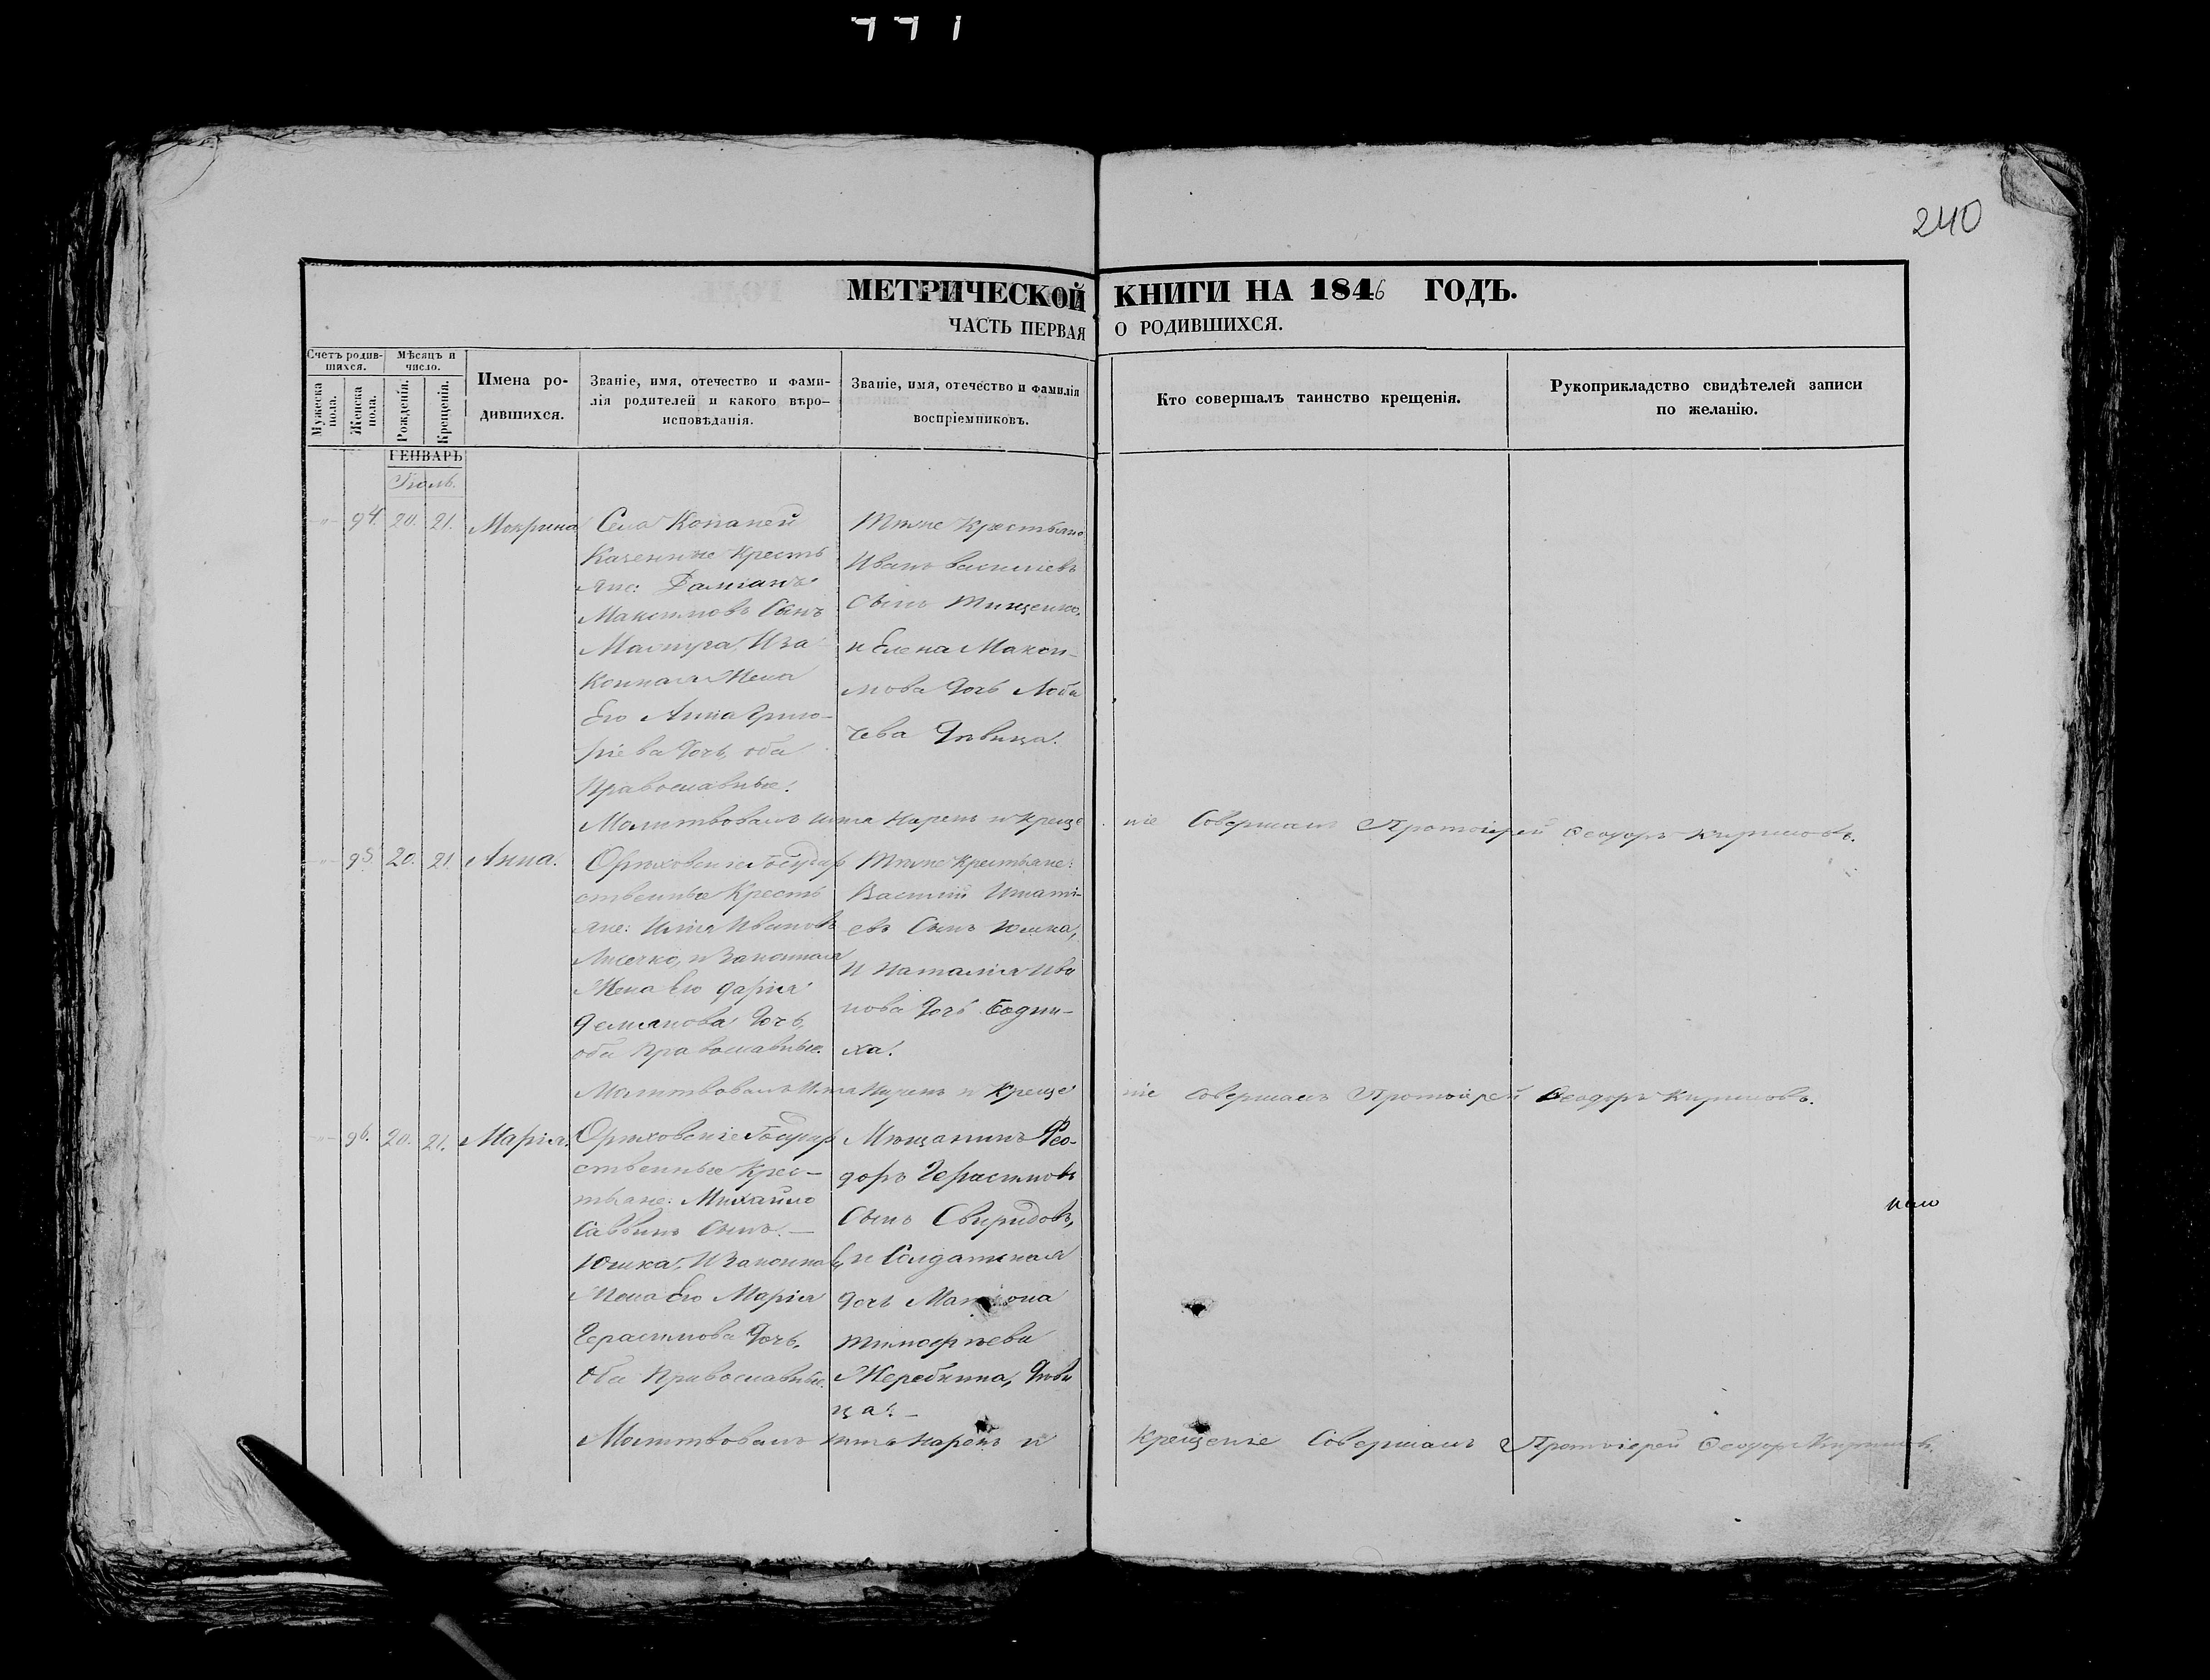 240
МЕТРИЧЕСКОЙ КНИГИ НА 1846 ГОДЪ.
ЧАСТЬ ПЕРВАЯ О РОДИВШИХСЯ.
Счетъ родив-
шихся.
Мужеска
пола.
Женска
пола.
Мѣсяцъ и
число.
Рожденія.
Крещенія.
Имена ро-
дившихся.
Званіе, имя, отечество и фами-
лія родителей и какого вѣро-
исповѣданія.
Званіе, имя, отечество и фамилія
воспріемниковъ.
Кто совершалъ таинство крещенія.
Рукоприкладство свидѣтелей записи
по желанію.
ГЕНВАРЬ
Іюль.
94. 20. 21. Мокрина
Села Копаней
Казенные Кресть
яне: Даміанъ
Максимовъ Сынъ
И За
конная Жена
Его Анна Григо-
ріева Дочь, оба
Православные.
Тѣже Крестьяне
Иванъ Васильевъ
Сынъ Тищенко,
и Елена Макси-
мова Дочь
Дѣвица.
Молитвовалъ Имя Нарекъ и Креще
ніе Совершалъ Протоіерей Ѳеодоръ Кириловъ.
95. 20. 21 Анна.
Орѣховскіе Государ
ственные Кресть
яне: Илія Ивановъ
Лисечко, и Законная
Жена Его Дарія
Демианова Дочь,
оба Православные.
Тѣже Крестьяне:
Василій Игнатi-
евъ Сынъ Юшка,
И Наталія Ива
нова Дочь
ха.
Молитвовалъ Имя Нарекъ и Креще
ніе Совершалъ Протоіерей Ѳеодоръ Кириловъ.
96. 20. 21. Марія.
Орѣховскіе Государ
ственные Крес-
тьяне: Михайло
Саввинъ Сынъ.—
Юшка, И Законная
Жена Его Марія
Герасимова Дочь,
Оба Православные.
Мѣщанинъ Фео-
доръ Герасимовъ
Сынъ Свиридовъ,
и Солдатская
Дочь
Тимофѣева
Жеребкина, Дѣви
ца.—
Молитвовалъ Имя Нарекъ и
Крещеніе Совершалъ Протоіерей Ѳеодоръ Кириловъ.